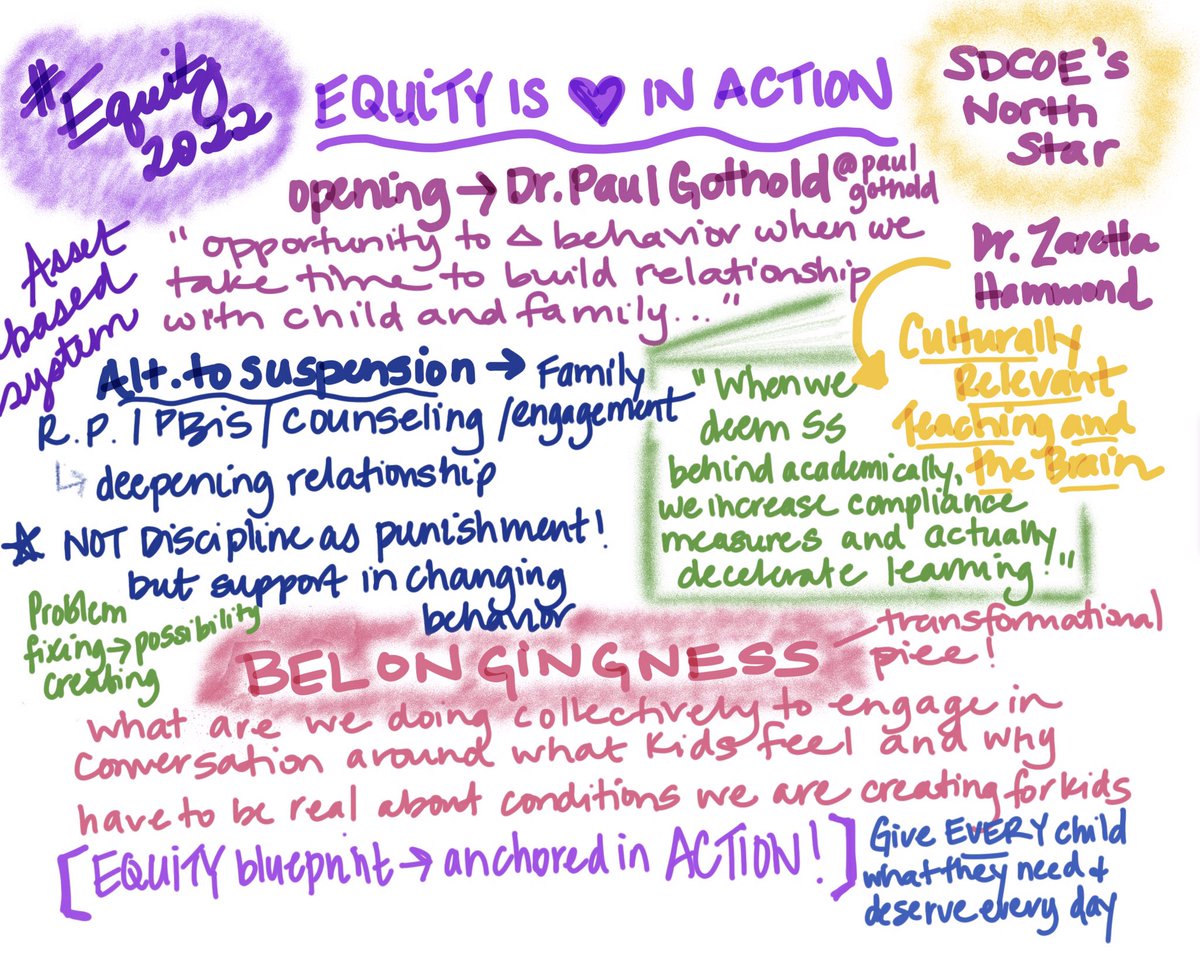 #Equity
2022
EQUITY IS ♥ IN ACTION
SDCOE's
North
Star
opening → Dr. Paul Gothold @paul
gothold
Asset
based
system
"opportunity to △ behavior when we
take time to build relationship
with child and family..."
Dr. Zaretta
Hammond
Culturally
Relevant
Teaching and
the Brain
Alt. to suspension → Family
R.P. / PBiS / Counseling / engagement
↳ deepening relationship
☆ NOT Discipline as punishment!
but support in changing
behavior
"When we
deem SS
behind academically,
we increase compliance
measures and actually
decelerate learning!"
Problem
fixing → possibility
creating
BELONGINGNESS
transformational
piece!
what are we doing collectively to engage in
conversation around what kids feel and why
have to be real about conditions we are creating for kids
[EQUITY blueprint → anchored in ACTION!]
Give EVERY child
what they need +
deserve every day